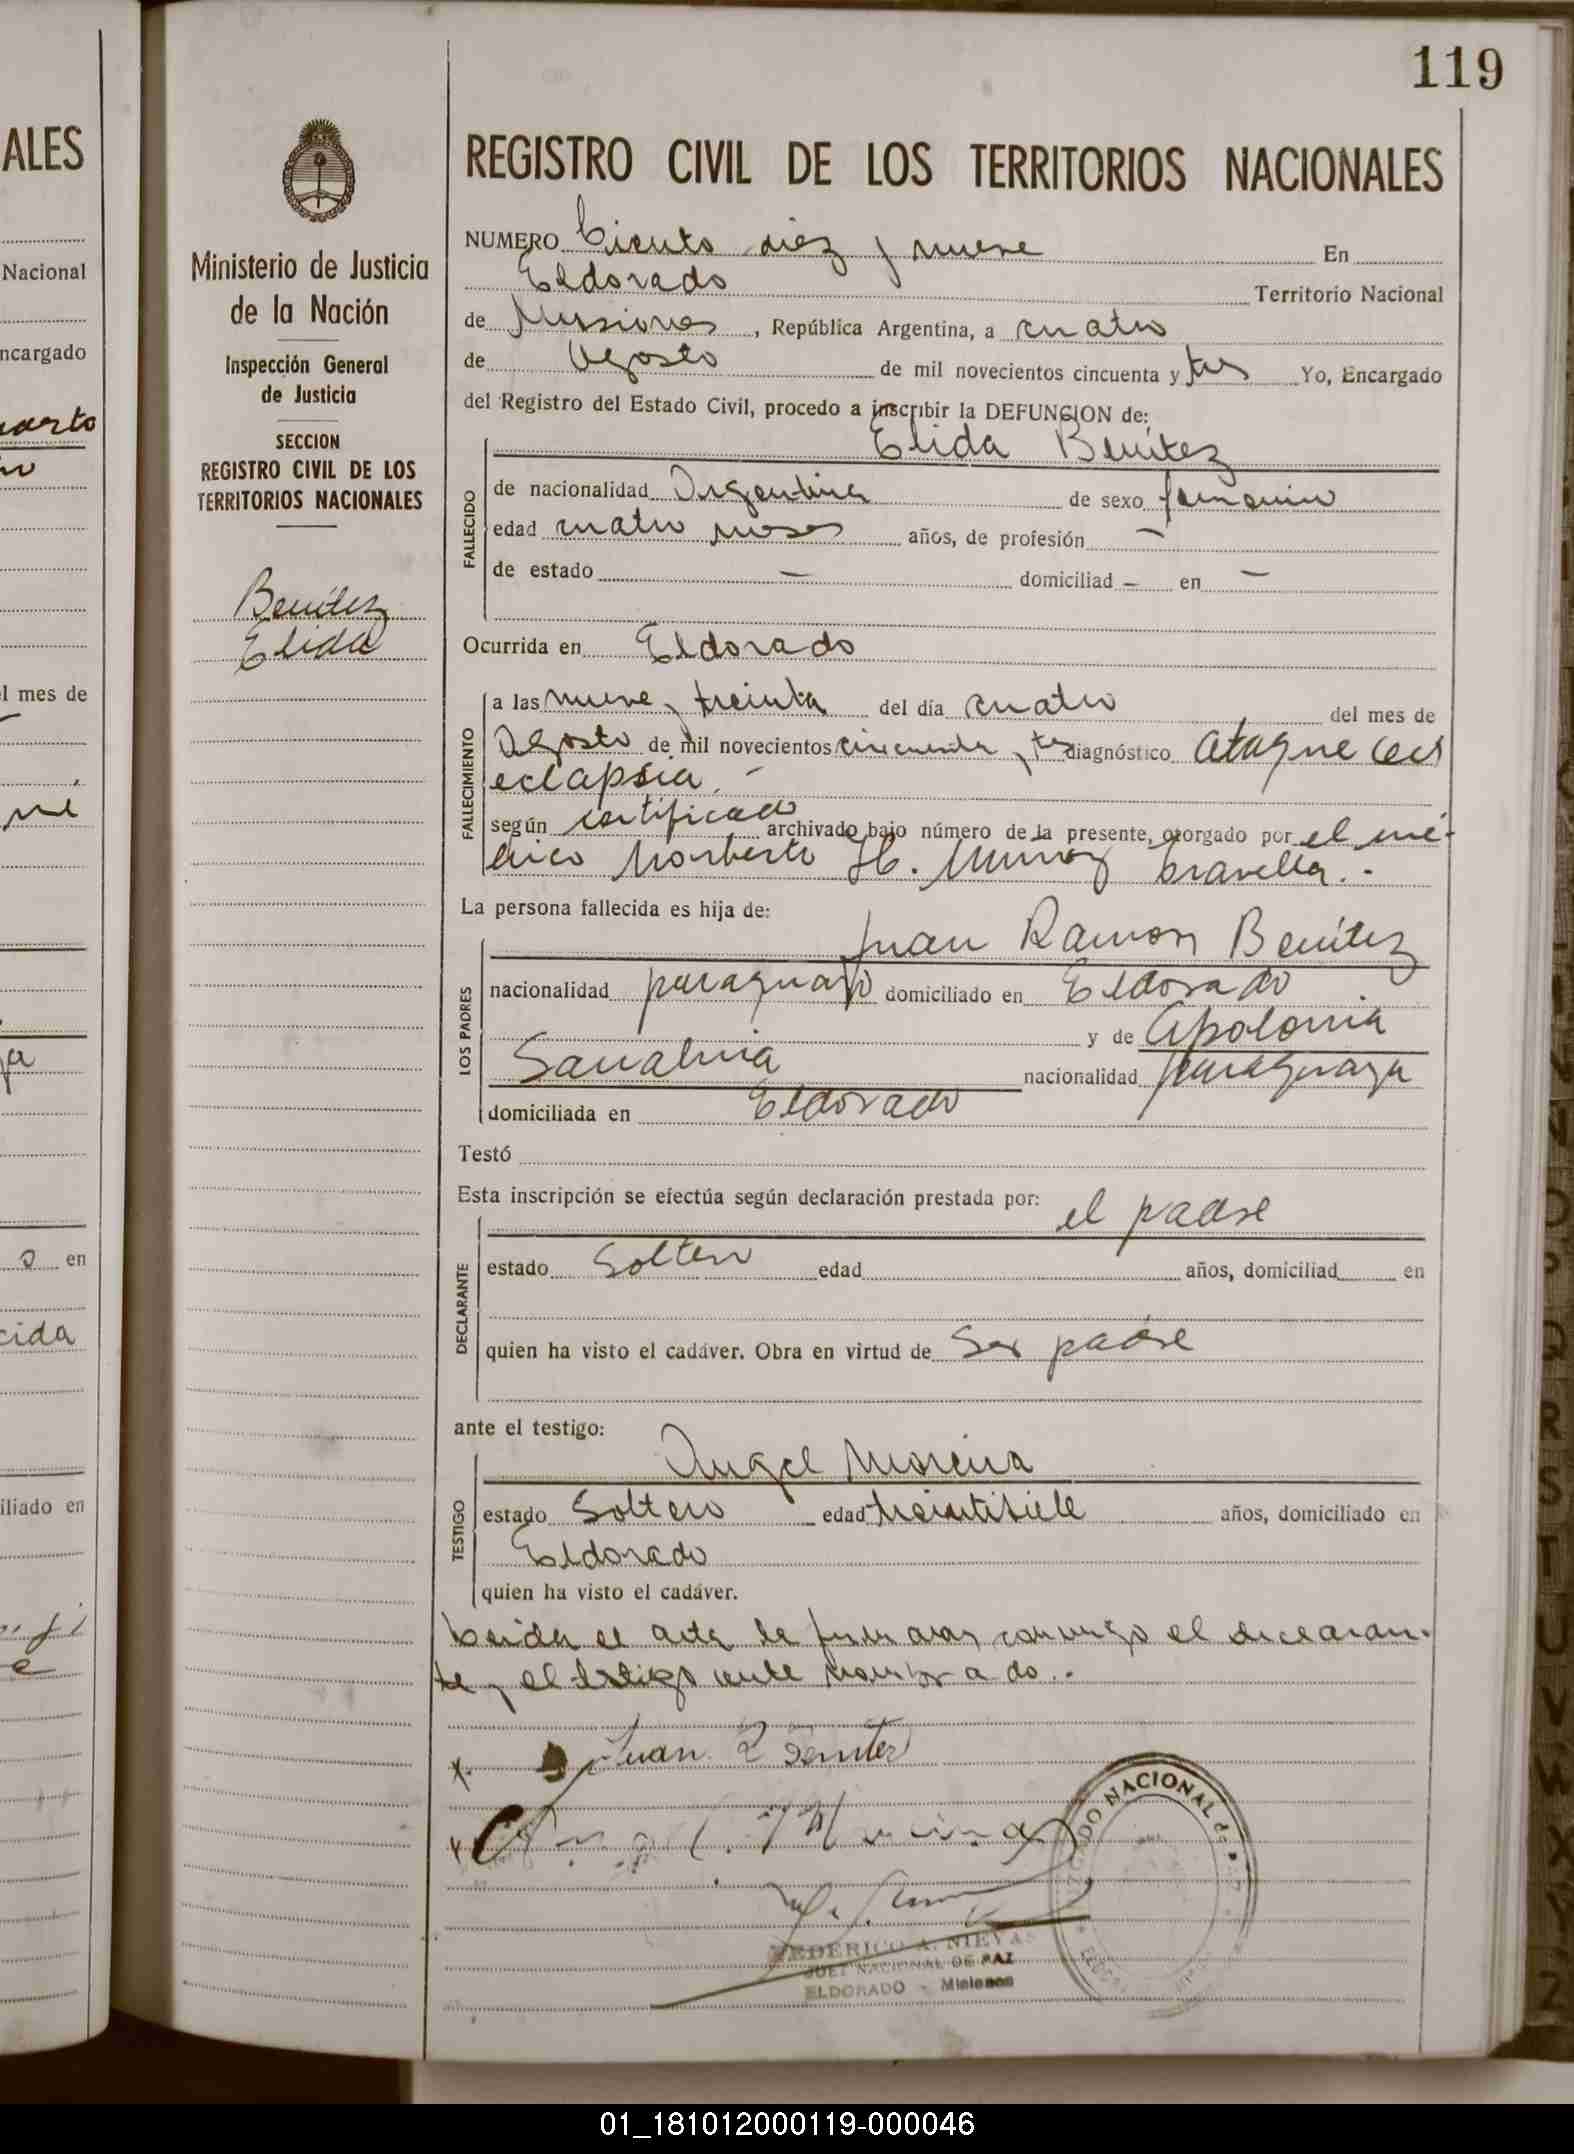 119
ALES
Nacional
ncargado
l mes de
en
cida
iliado en
Ministerio de Justicia
de la Nación
Inspección General
de Justicia
SECCION
REGISTRO CIVIL DE LOS
TERRITORIOS NACIONALES
Benítez
Elida
REGISTRO CIVIL DE LOS TERRITORIOS NACIONALES
NUMERO Ciento diez y nueve En
Eldorado Territorio Nacional
de Misiones, República Argentina, a cuatro
de Agosto de mil novecientos cincuenta y tres Yo, Encargado
del Registro del Estado Civil, procedo a inscribir la DEFUNCION de:
Elida Benitez
FALLECIDO
de nacionalidad Argentina de sexo femenino
edad cuatro meses años, de profesión —
de estado — domiciliad — en —
Ocurrida en Eldorado
FALLECIMIENTO
a las nueve y treinta del día cuatro del mes de
Agosto de mil novecientos cincuenta y tres diagnóstico Ataque
eclapsia.
según certificado archivado bajo número de la presente, otorgado por el mé-
dico Norberto H. Munoz
La persona fallecida es hija de:
LOS PADRES
Juan Ramon Benítez
nacionalidad paraguayo domiciliado en Eldorado
y de Apolonia
Sanabria nacionalidad paraguaya
domiciliada en Eldorado
Testó
Esta inscripción se efectúa según declaración prestada por: el padre
DECLARANTE
estado Soltero edad años, domiciliad en
quien ha visto el cadáver. Obra en virtud de Ser padre
ante el testigo:
TESTIGO
Angel Moreira
estado Soltero edad treintisiete años, domiciliado en
Eldorado
quien ha visto el cadáver.
Leida el acta la firmaron conmigo el declaran-
te y el testigo ante nombrado.-
Juan R Benitez
FEDERICO A. NIEVAS
JUEZ NACIONAL DE PAZ
ELDORADO - Misiones
NACIONAL DE
01_181012000119-000046